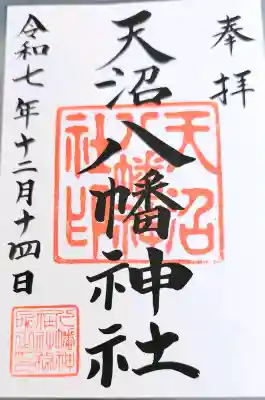 奉拝
天沼八幡神社
天沼八幡社印
令和七年十二月十四日